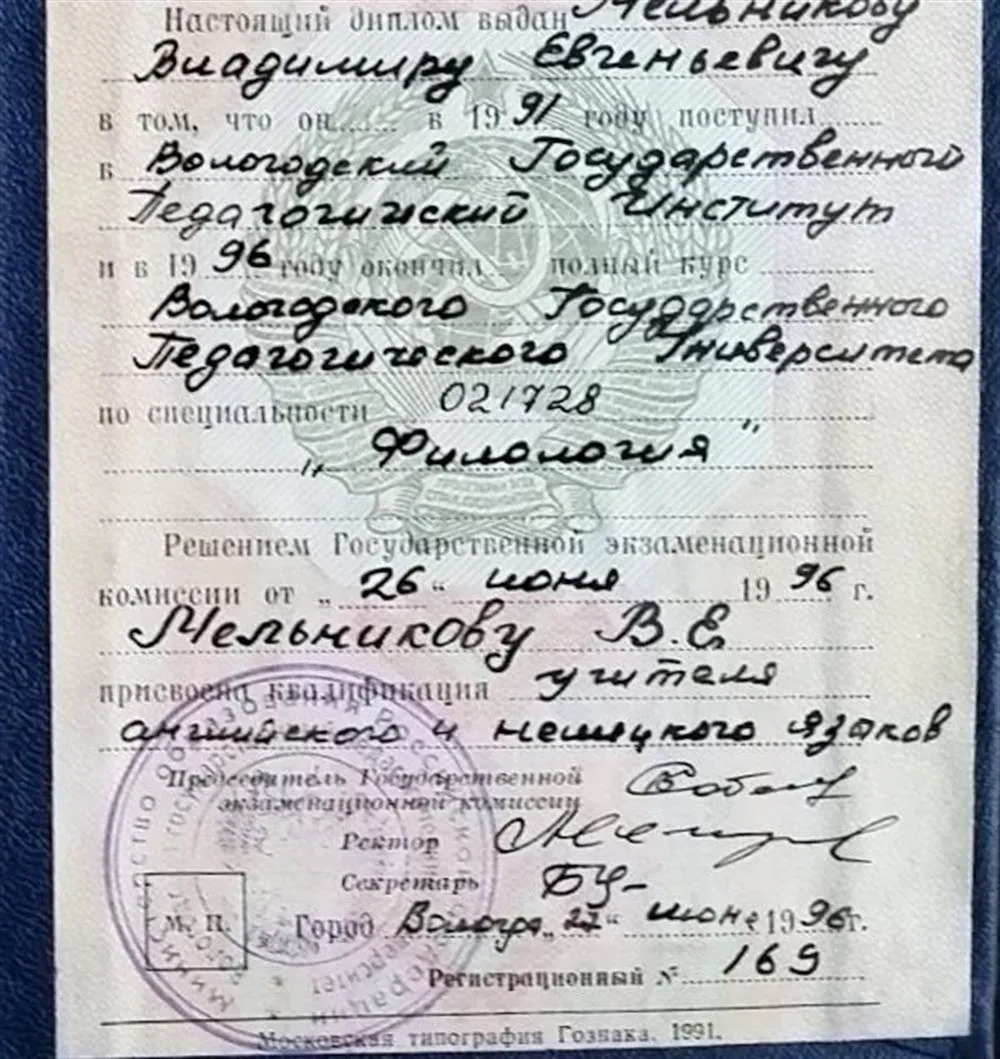 Настоящий диплом выдан Мельникову
Владимиру Евгеньевичу
в том, что он в 1991 году поступил
в Вологодский Государственный
Педагогический Институт
и в 1996 году окончил полный курс
Вологодского Государственного
Педагогического Университета
по специальности 021728
„Филология"
Решением Государственной экзаменационной
комиссии от „26“ июня 1996 г.
Мельникову В.Е.
присвоена квалификация учителя
английского и немецкого языков
Председатель Государственной
экзаменационной комиссии
Ректор
Секретарь
М. П. Город Вологда „27“ июня 1996г.
Регистрационный № 169
Московская типография Гознака. 1991.